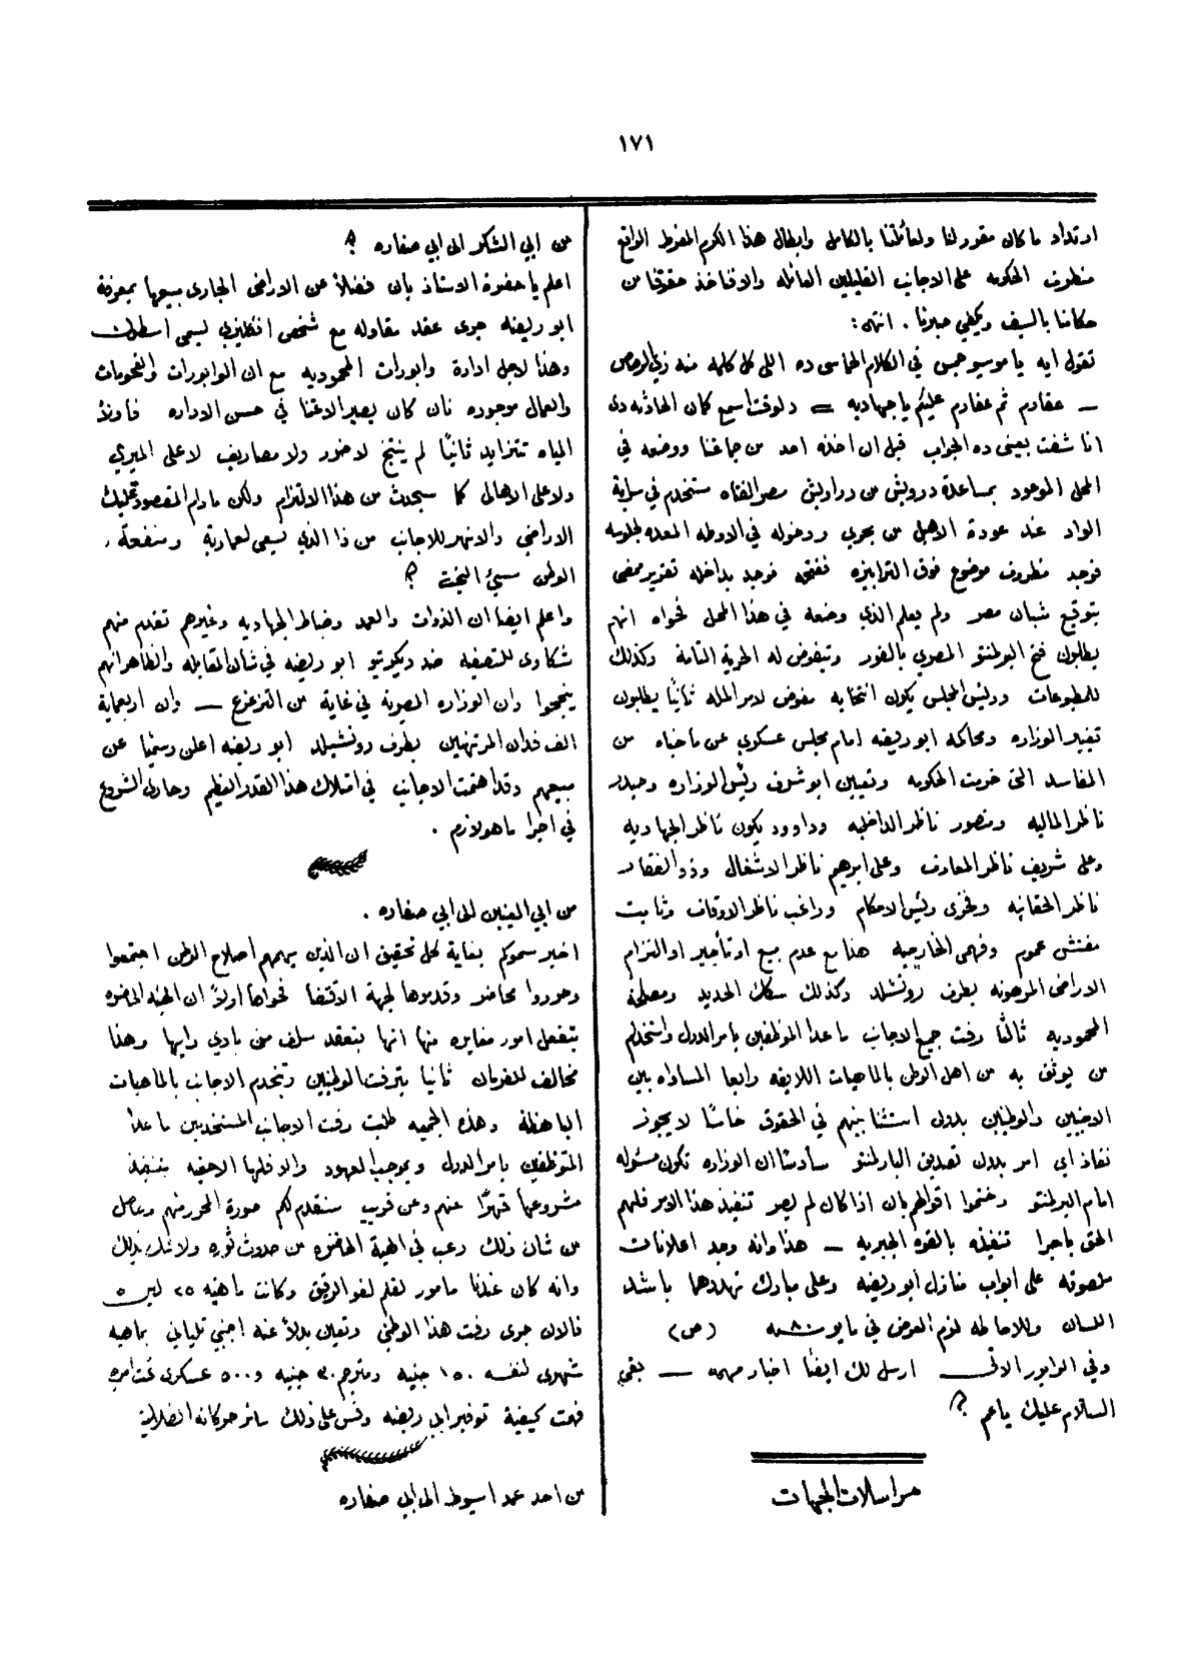 ١٧١
ارتداد ما كان مقرر لنا ولعائلتنا بالكامل وابطال هذا الكرم المفرط الواقع
من طرف الحكومه على الاجانب القليلين العائله والا فناخذ حقوقنا من
حكامنا بالسيف ويكفي صبرنا . انتهى :
تقول ايه يا موسيو جمس في الكلام الحماسى ده اللى كل كلمه منه زي الرصاص
— عفارم ثم عفارم عليكم يا جهاديه = دلوقت اسمع كمان الحادثه دى
انا شفت بعينى ده الجواب قبل ان اخذه احد من جماعتنا ووضعه في
المحل الموجود بمساعدة درويش من دراويش مصر الفتاه مستخدم في سراية
الواد عند عودة الاهبل من بحري ودخوله في الاوطه المعده لجلوسه
فوجد مظروف موضوع فوق الترابيزه ففتحه فوجد بداخله تقرير ممضى
بتوقيع شبان مصر ولم يعلم الذي وضعه في هذا المحل فحواه انهم
يطلبون فتح البرلمنتو المصري بالفور وتفوض له الحرية التامة وكذلك
للمطبوعات ورئيس المجلس يكون انتخابه مفوض لامر المله ثانيًا يطلبون
تغيير الوزاره ومحاكمة ابو ريضه امام مجلس عسكري عن ما جناه من
المفاسد التى خربت الحكومه وتعيين ابو شرف رئيس الوزاره وحيدر
ناظر الماليه ومنصور ناظر الداخليه وداوود يكون ناظر الجهاديه
وعلى شريف ناظر المعارف وعلى ابرهيم ناظر الاشغال وذو الفقار
ناظر الحقانيه وفخرى رئيس الاحكام وراغب ناظر الاوقاف وثابت
مفتش عموم وفهمى الخارجيه هذا مع عدم بيع او تأجير او التزام
الاراضى المرهونه بطرف روتشلد وكذلك سكك الحديد ومصلحة
المحموديه ثالثًا رفت جميع الاجانب ما عدا الموظفين بامر الدول واستخدام
من يوثق به من اهل الوطن بالماهيات اللايقه رابعا المساواه بين
الاجنبيين والوطنيين بدون استثنا بينهم في الحقوق خامسًا لا يجوز
نفاذ اي امر بدون تصديق البارلمنتو سادسًا ان الوزاره تكون مسئوله
امام البرلمنتو وختموا اقوالهم بان اذا كان لم يصير تنفيذ هذا الامر فلهم
الحق باجرا تنفيذه بالقوه الجبريه — هذا وانه وجد اعلانات
ملصوقه على ابواب منازل ابو ريضه وعلى مبارك تهددهما باشد
اللسان وللاحاطه لزم العرض في مايو سنه ٨٠ (ص)
وفي الوابور الاتى ارسل لك ايضًا اخبار مهمه — بقي
السلام عليك يا عم
مراسلات الجهات
من ابي الشكر الى ابي صفاره
اعلم يا حضرة الاستاذ بان فضلاً عن الاراضى الجارى بيعها بمعرفة
ابو ريضه جرى عقد مقاوله مع شخص انكليزي يسمى اسطون
وهذا لاجل ادارة وابورات المحموديه مع ان الوابورات والفحومات
والعمال موجوده فان كان يصير الاعتنا في حسن الاداره فاولاً
المياه تتزايد ثانيًا لم ينتج لا ضرر ولا مصاريف لا على الميري
ولا على الاهالى كما سيحدث من هذا الالتزام ولكن ما دام المقصود تمليك
الاراضي والانهر للاجانب من ذا الذي يسعى لعمارية ومنفعة
الوطن سيئ البخت
واعلم ايضا ان الذوات والعمد وضباط الجهاديه وغيرهم تقدم منهم
شكاوى للتصفيه ضد ديكريتو ابو ريضه في شان المقابله والظاهر انهم
ينجحوا وان الوزاره المصريه في غاية من التزعزع — وان اربعماية
الف فدان المرتهنين بطرف روتشيلد ابو ريضه اعلن رسميًا عن
مبيعهم وقد اهتمت الاجانب في امتلاك هذا القدر العظيم وجارى الشروع
في اجرا ما هو لازم .
من ابي العينين الى ابي صفاره .
اخبر سموكم بغاية كل تحقيق ان الذين يهمهم اصلاح الوطن اجتمعوا
وحرروا محاضر وقدموها لجهة الاقتضا فحواها اولاً ان الهيئه الحاضره
بتفعل امور مغايره منها انها بتعقد سلف من بادي رايها وهذا
مخالف للفرمان ثانيا بترفت الوطنيين وتخدم الاجانب بالماهيات
الباهظة وهذه الجمعيه طلبت رفت الاجانب المستخدمين ما عدا
المتوظفين بامر الدول وبموجب العهود والا فلها الاحقيه بتنفيذ
مشروعها قهرًا عنهم وعن قريب سنقدم لكم صورة المحرر منهم وحاصل
من شان ذلك رعب في الهيئة الحاضره من حدوث ثوره ولا شك بذلك
وانه كان عندنا مامور لقلم لغو الرقيق وكانت ماهيته ٢٥ ليره
فالان جرى رفت هذا الوطني وتعين بدلاً عنه اجنبي تلياني بماهيه
شهرى لنفسه ١٥٠ جنيه ومترجم ٣٠ جنيه و ٥٠٠ عسكرى تحت امره
فهمت كيفية توفير ابي ريضه وقس على ذلك سائر حركاته الضلالية
من احد عمد اسيوط الى ابي صفاره